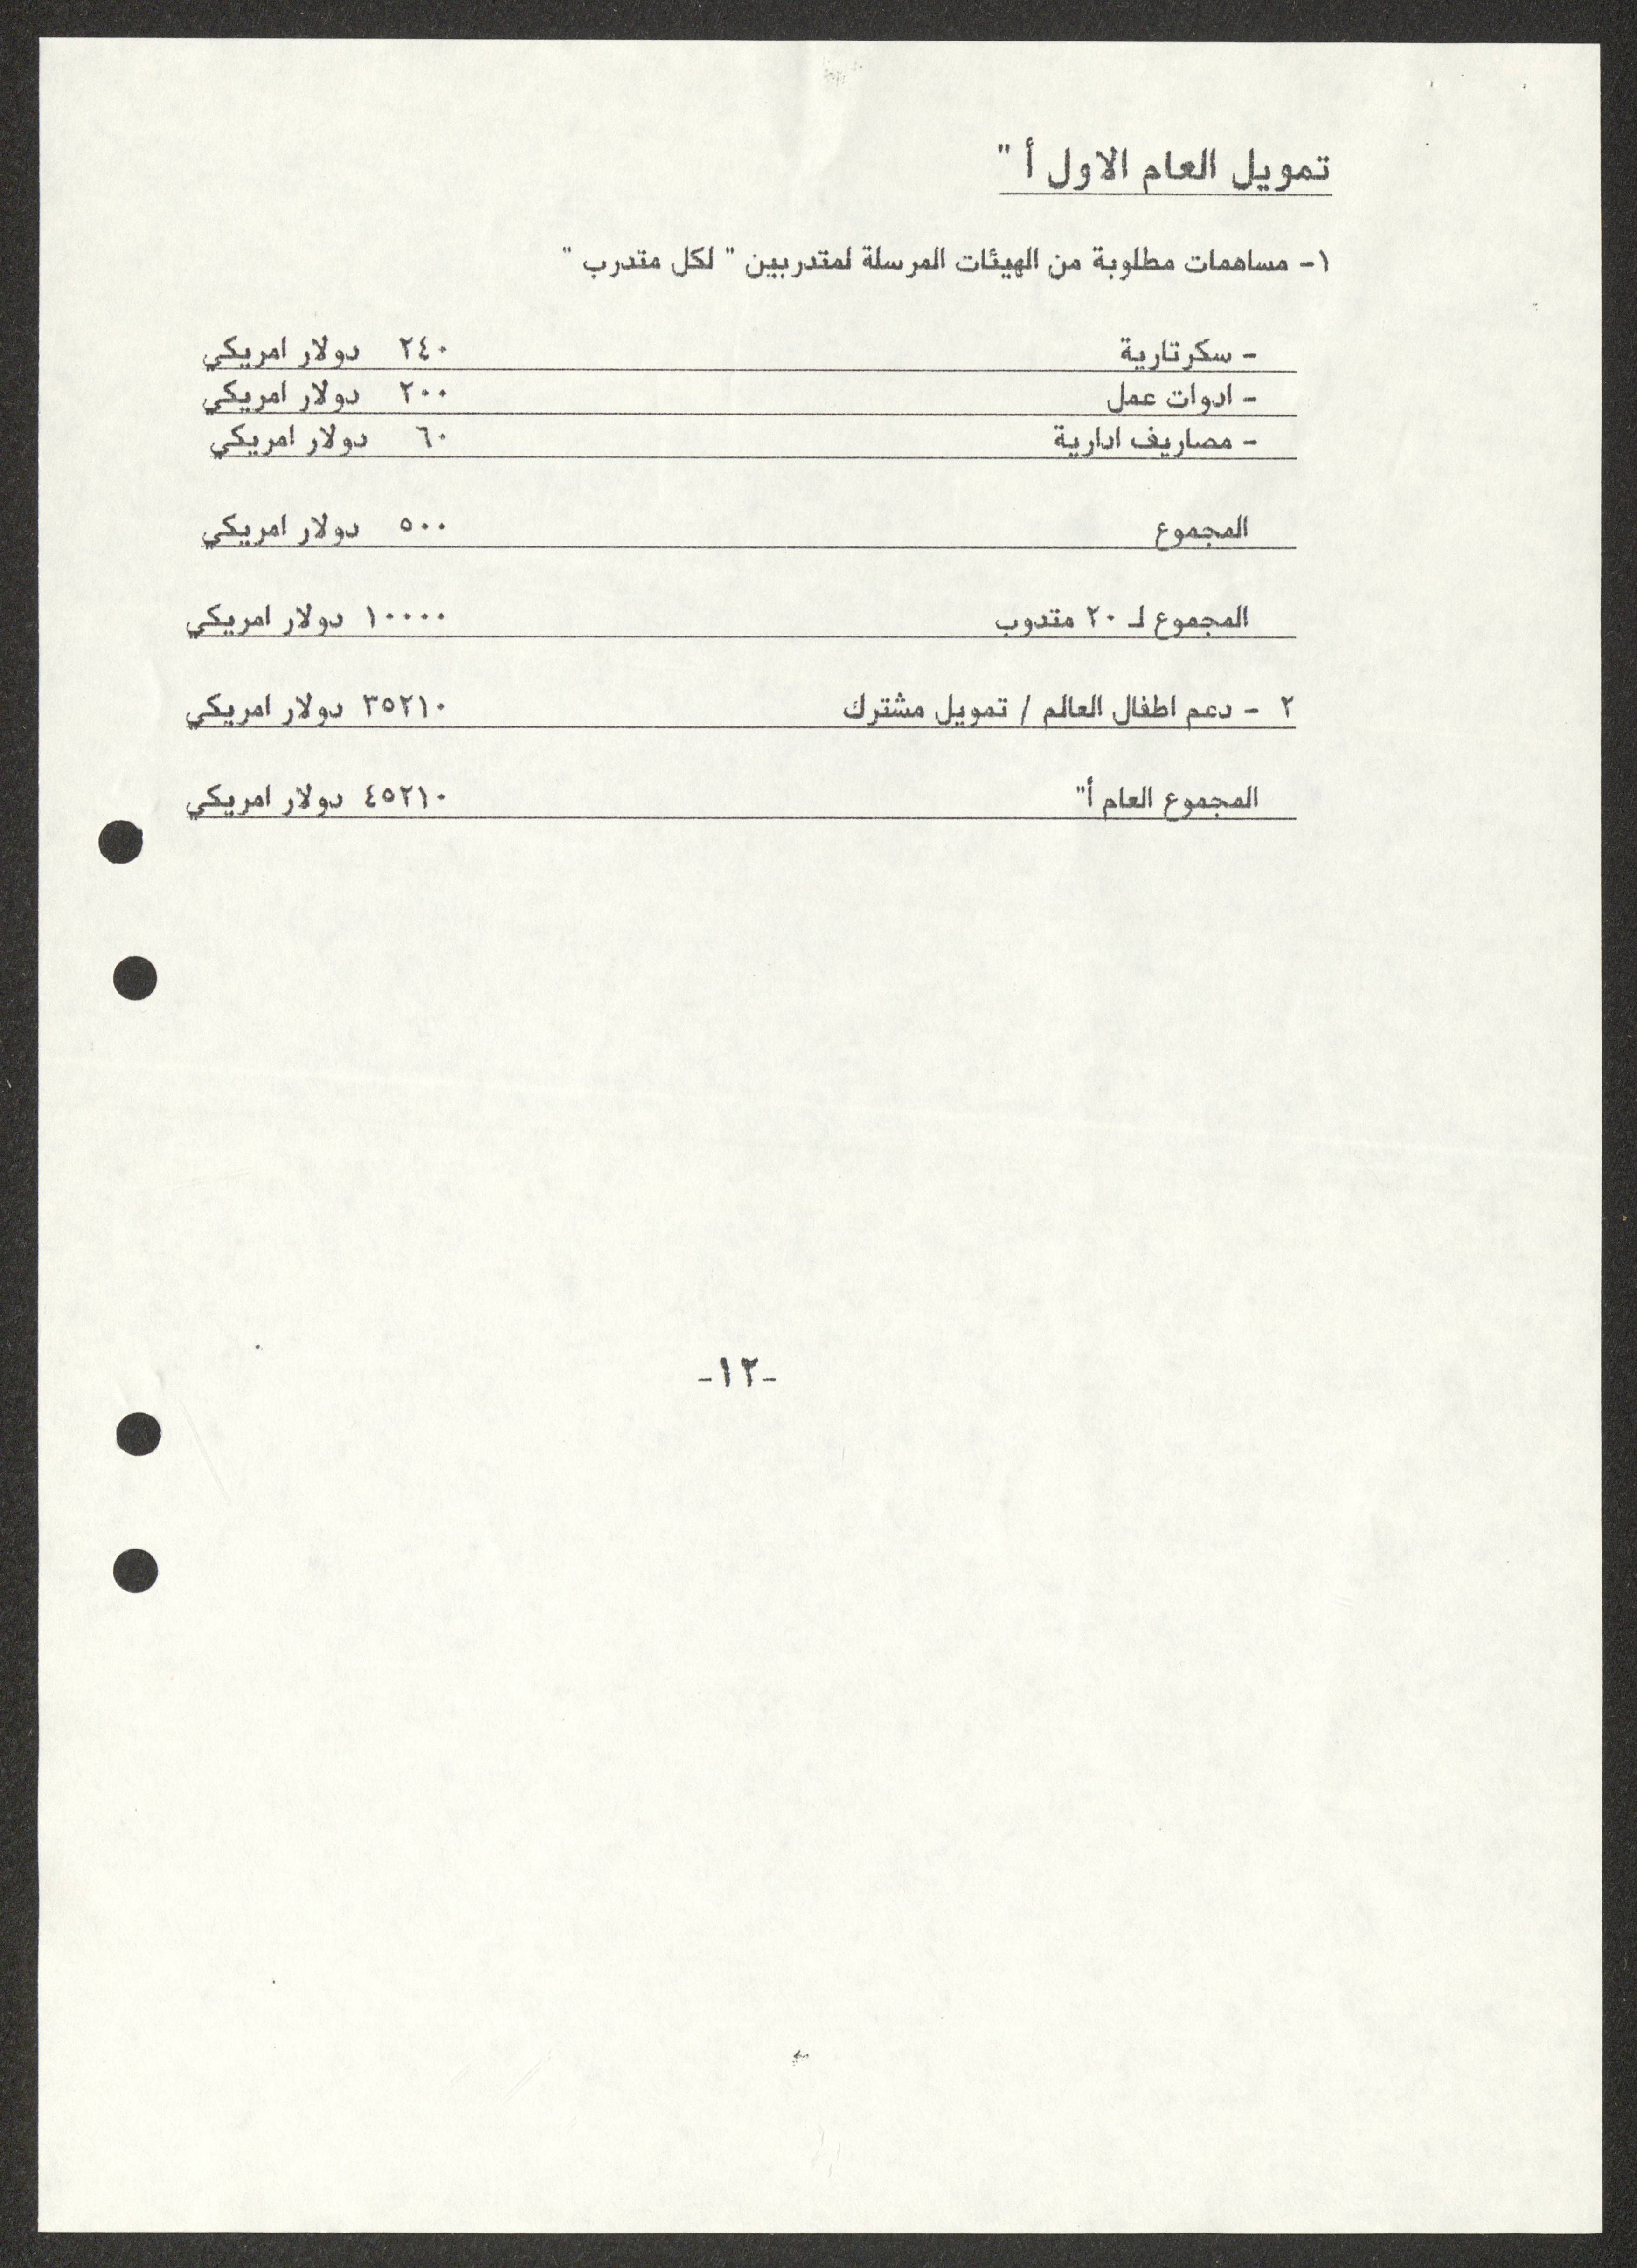 تمويل العام الاول أ "
١- مساهمات مطلوبة من الهيئات المرسلة لمتدربين " لكل متدرب "
- سكرتارية ٢٤٠ دولار امريكي
- ادوات عمل ٢٠٠ دولار امريكي
- مصاريف ادارية ٦٠ دولار امريكي
المجموع ٥٠٠ دولار امريكي
المجموع لـ ٢٠ متدوب ١٠٠٠٠ دولار امريكي
٢ - دعم اطفال العالم / تمويل مشترك ٣٥٢١٠ دولار امريكي
المجموع العام أ" ٤٥٢١٠ دولار امريكي
-١٢-